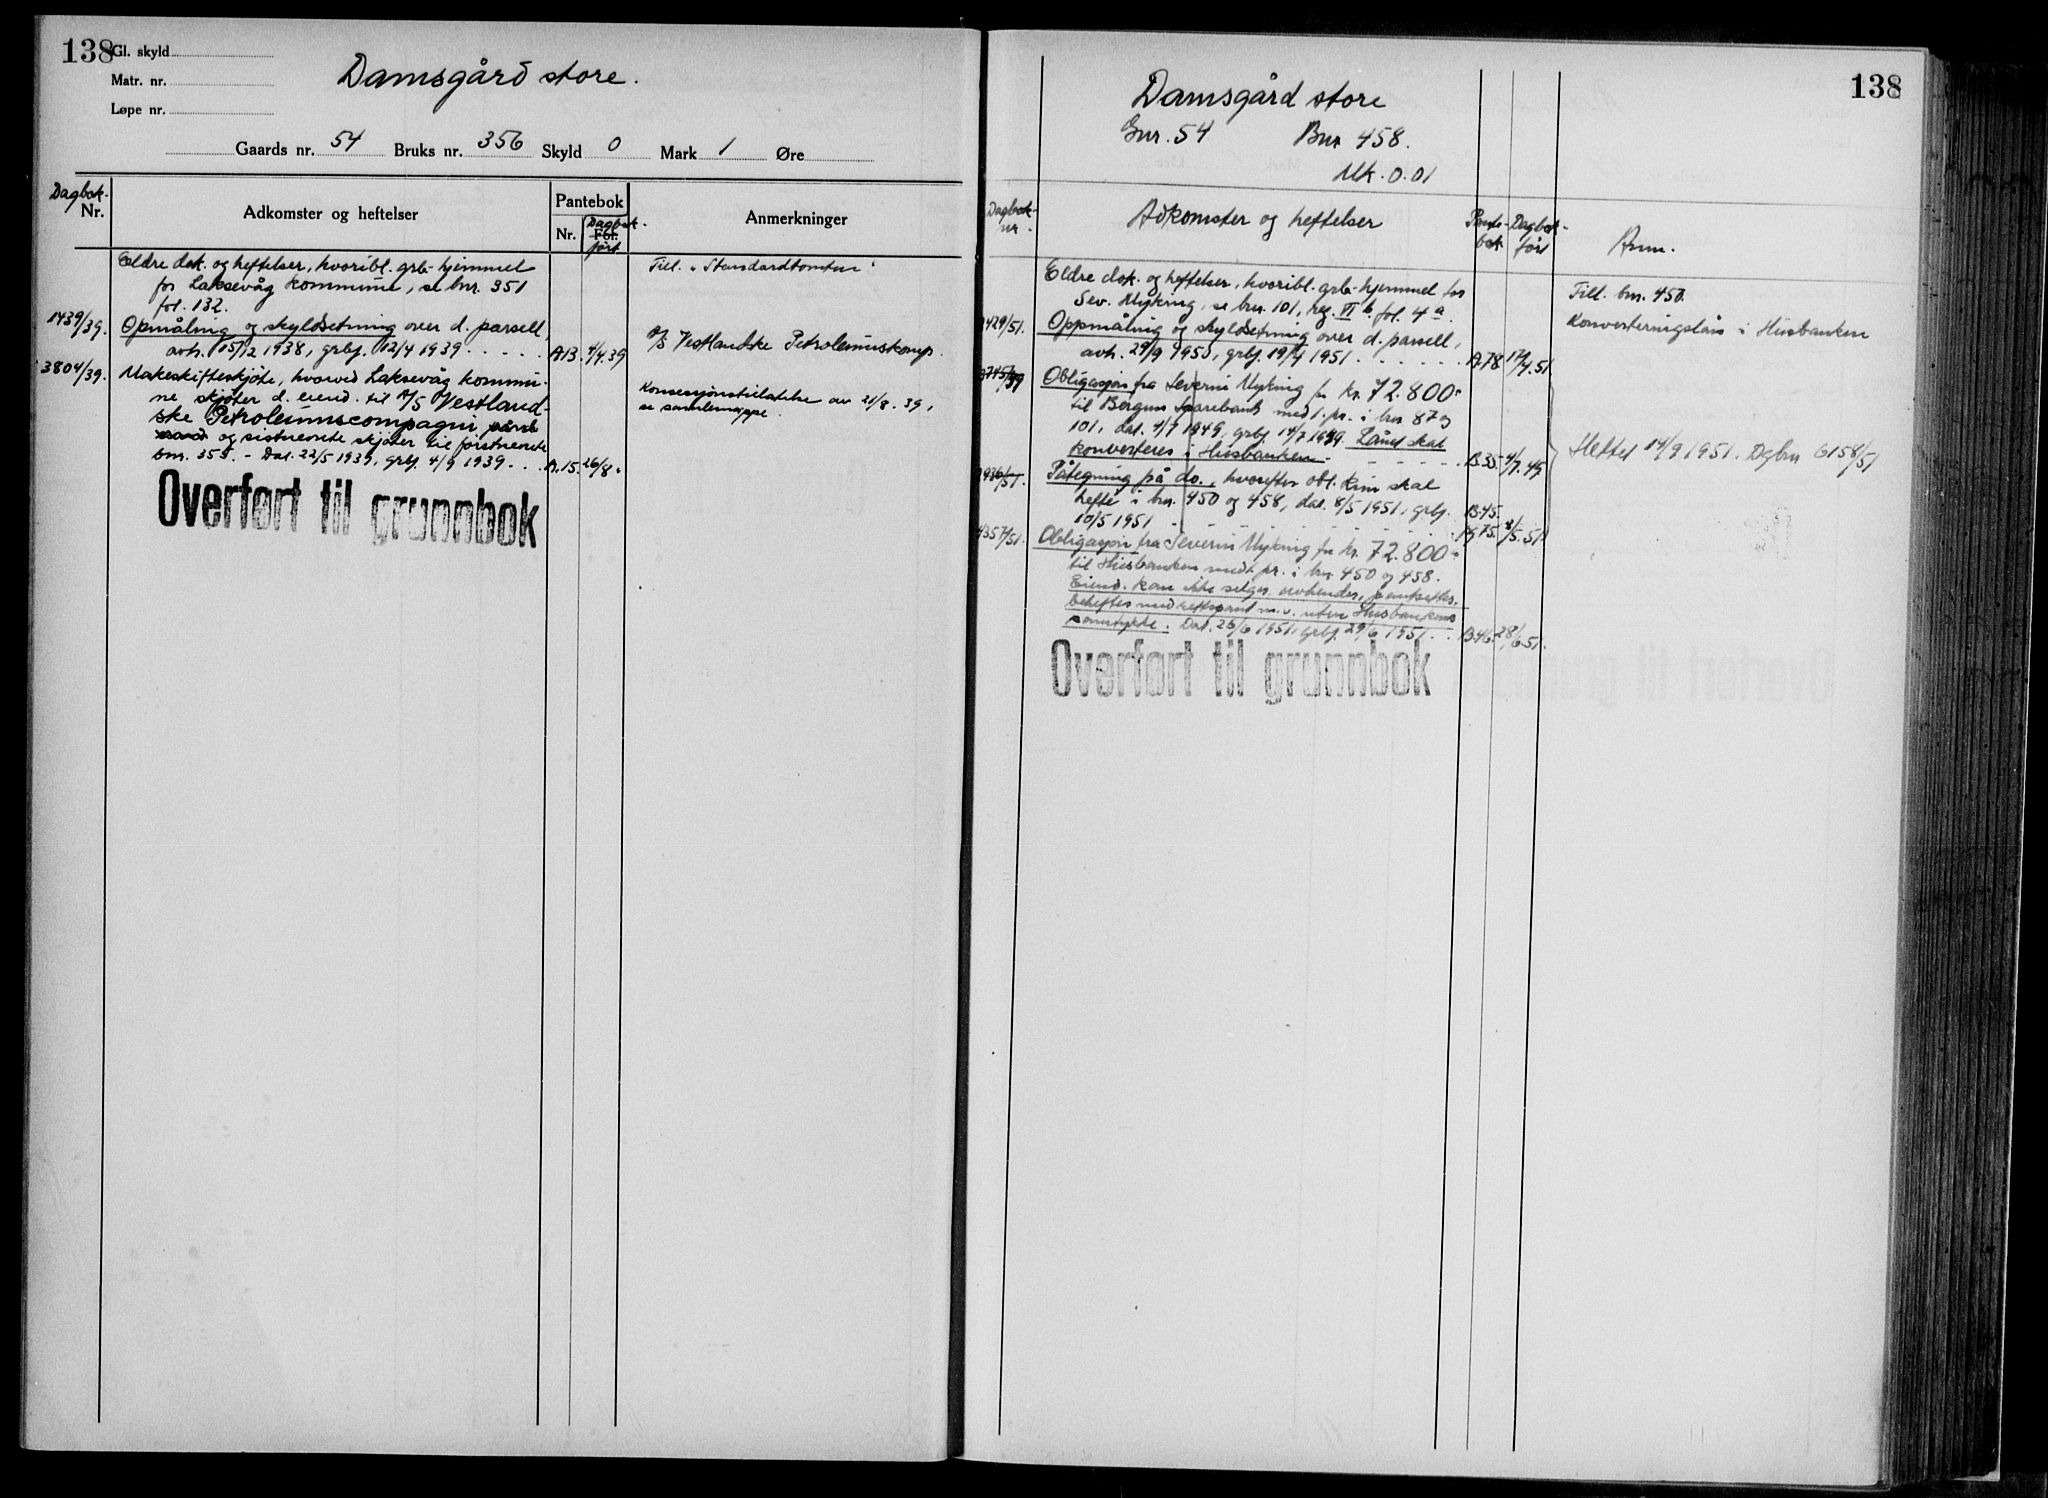 138
Gl. skyld
Matr. nr.
Løpe nr.
Damsgård store.
Gaards nr. 54 Bruks nr. 356 Skyld 0 Mark 1 Øre
Dagbok- Nr.
Adkomster og heftelser
Pantebok
Nr. Fol. Dagbok- ført
Anmerkninger
Eldre dok. og heftelser, hvoribl. grb-hjemmel
for Laksevåg kommune, se bnr. 351
fol. 132.
1439/39. Opmåling og skyldsetning over d. parsell,
avh. 15/12 1938, grbj. 12/4 1939 . . . . . A13. 4/4.39
3804/39. Makeskifteskjøte, hvorved Laksevåg kommu-
ne skjøter d. eiend. til A/S Vestland-
ske Petroleumscompagni
og sistnevnte skjøter til førstnevnte
bnr. 355. - Dat. 22/5 1939, grbj. 4/9 1939 . . . A.15. 26/8.
Till. "Standardtomten"
A/S Vestlandske Petroleumskomp.
Konsesjonstillatelse av 21/8. 39,
se samlemappe.
Overført til grunnbok
138
Damsgård store
Gnr. 54 Bnr 458.
Mk. 0.01
Dagbok- nr
Adkomster og heftelser
Pante- bok
Dagbok- ført
Anm.
Eldre dok. og heftelser, hvoribl. grb-hjemmel for
Sev. Myking, se bnr. 101, reg. VI b fol. 4a.
2429/51. Oppmåling og skyldsetning over d. parsell,
avh. 29/9 1950, grbj. 19/4 1951 . . . . . A.78 17/4.51
Obligasjon fra Severin Myking for kr. 72.800.-
til Bergens Sparebank med 1. pr. i bnr 87 og
101, dat. 4/7 1949, grbj. 14/7 1949. Lånet skal
konverteres i Husbanken. - - - - - B.35. 4/7.49
Påtegning på do., hvorefter obl. kun skal
hefte i bnr. 450 og 458, dat. 8/5 1951, grbj. B.45.
10/5 1951 8/5.51
4357/51. Obligasjon fra Severin Myking for kr. 72.800.-
til Husbanken med 1. pr. i bnr. 450 og 458.
Eiend. kan ikke selges, avhendes, pantsettes,
beheftes med rettspant m.v. uten Husbankens
samtykke. Dat. 26/6 1951, grbj. 29/6 1951 . . B.46. 28/6.51.
Till. bnr. 450.
Konverteringslån i Husbanken
Slettet 14/9 1951. Dgbnr 6158/51
Overført til grunnbok